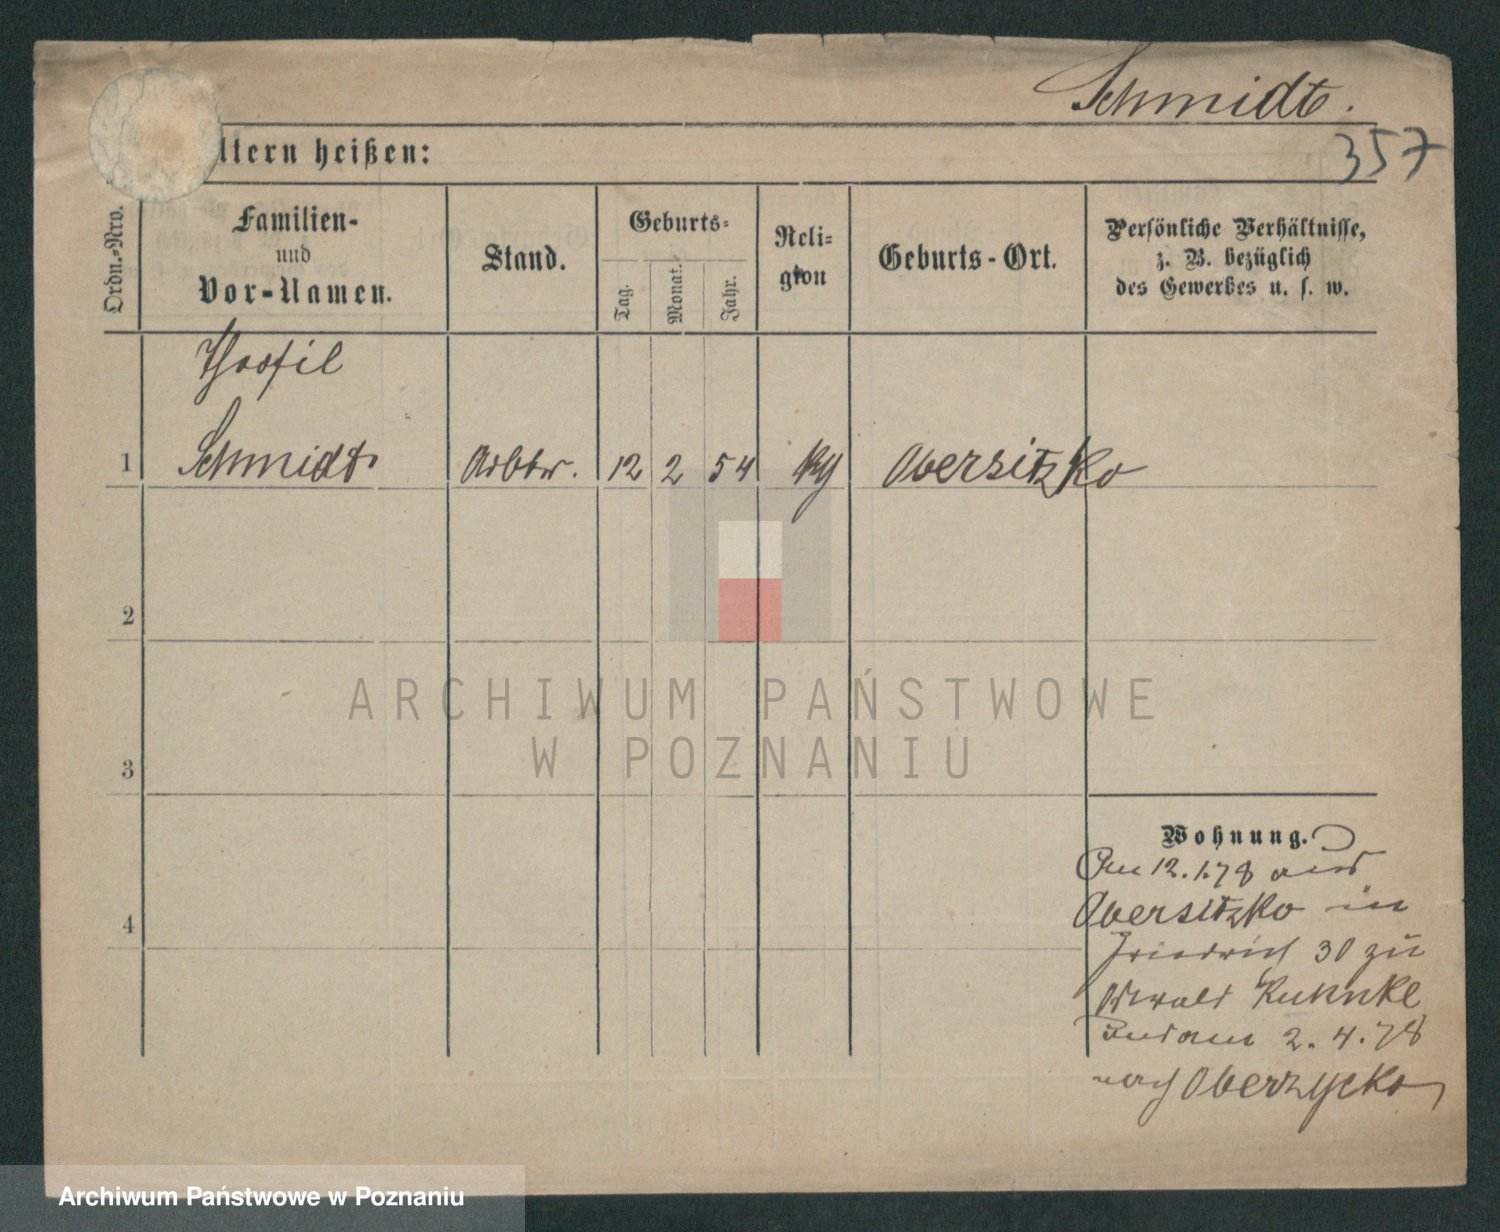 Schmidt.
357
ltern heißen:
Ordn.-Nro.
Familien-
und
Vor-Namen.
Stand.
Geburts-
Tag.
Monat.
Jahr.
Reli-
gion
Geburts-Ort.
Persönliche Verhältnisse,
z. B. bezüglich
des Gewerbes u. s. w.
Theofil
1 Schmidt 12 2 54 Obersitzko
2
3
4
ARCHIWUM PAŃSTWOWE
W POZNANIU
Wohnung.
Am 12.1.78 aus
Obersitzko in
Friedrich 30 zu
2. 4. 78
nach Oberzycko
Archiwum Państwowe w Poznaniu